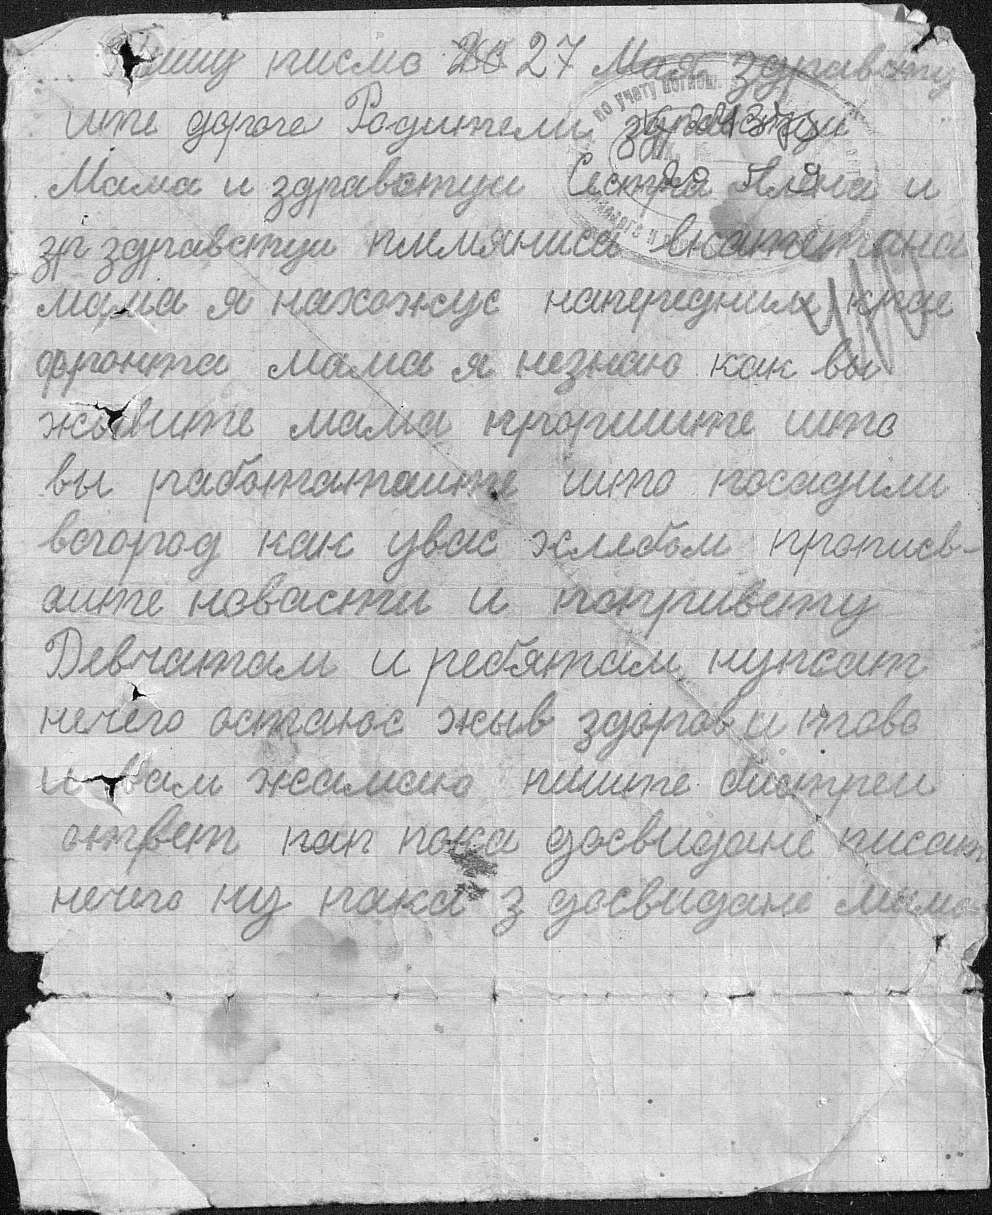 Пишу писмо 27 Мая здравству
ите дороге Родители здравствуи
Мама и здравствуи Сестра и
зр здравствуи племяниса
мама я нахожус напередним крае
фронта мама я незнаю как вы
жывите мама пропишите што
вы работатаите што посадили
вогород как увас хлебом прописв-
аите новасти и попривету
Девчатам и ребятам нуписат
нечего остаюс жыв здоров и тово
и вам жалаю пишите бистреи
ответ пап пока досвидане писат
нечего ну пака з досвидане мама
по учету